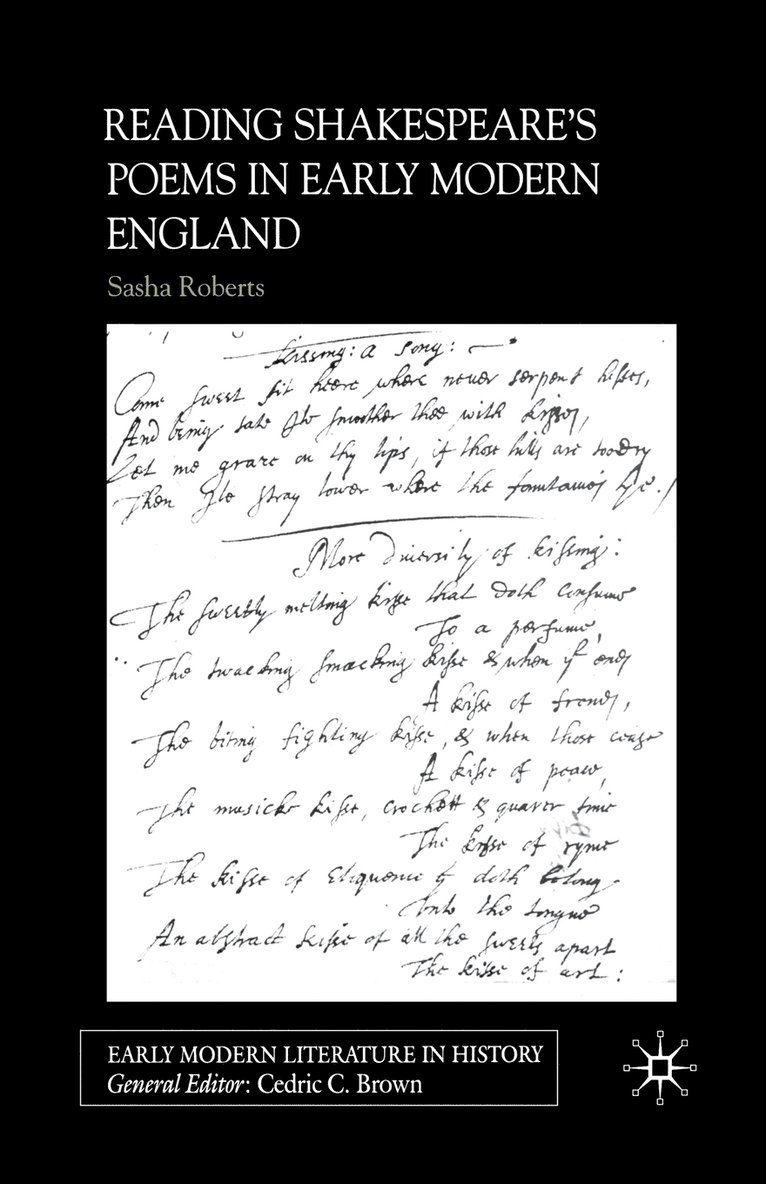 READING SHAKESPEARE'S
POEMS IN EARLY MODERN
ENGLAND
Sasha Roberts
kissing: a song:
Come sweet sit heere where never serpent hisses,
And being sate Ile smoother thee with kisses,
Let me graze on thy lips, if those hills are too dry
Then Ile stray lower where the fountaines lye.
More diversity of kissing:
The sweetly melting kisse that doth consume
To a perfume,
The smacking kisse & when it ends
A kisse of frends,
The biting fighting kisse, & when those cease
A kisse of peace,
The musicke kisse, crochett & quaver time
The kisse of ryme
The kisse of Eloquence doth belong
Unto the tongue
An abstract kisse of all the sweets apart
The kisse of art:
EARLY MODERN LITERATURE IN HISTORY
General Editor: Cedric C. Brown